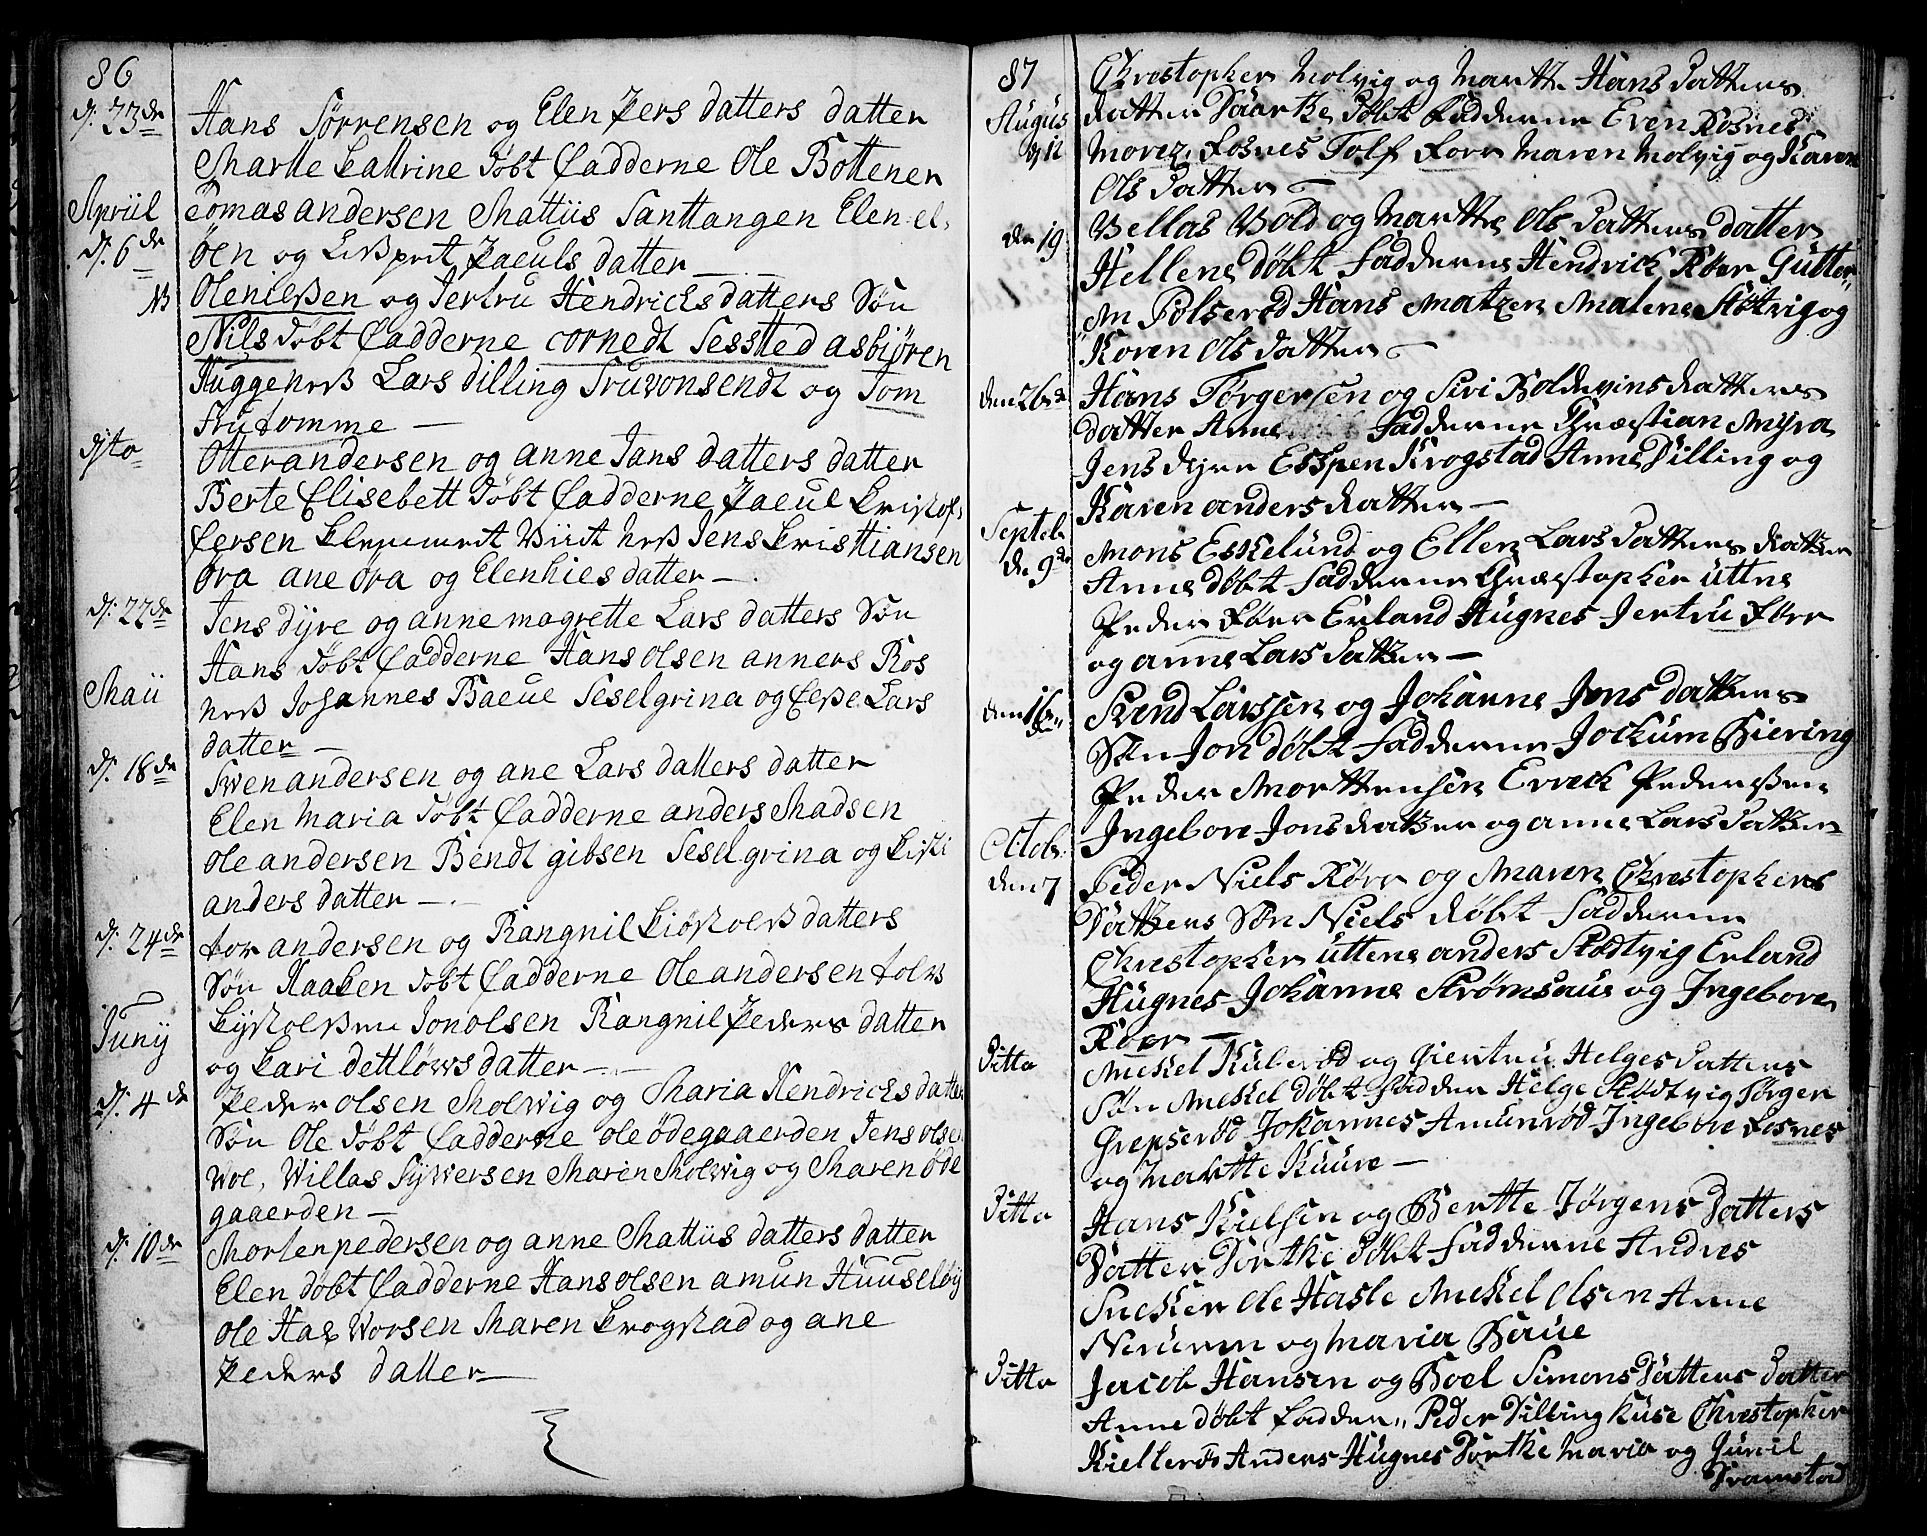 86
d: 23de
Hans Sörrensen og Elen Pers datters datter
Marte Katrine döbt Fadderne Ole Bottener
Apriil
Tomas andersen Mattiis Santtangen Elen el-
d: 6de
öen og Lissprit Paeuls datter
NB
Olenissen og Jertru Hendrichs datters Sön
Nils döbt Fadderne cornedt Sessted asbiören
Huggeness Lars dilling Fruvonsendt og Jom
fru tomme
dito
Otter andersen og anne Jans datters datter
Berte Elisebett döbt Fadderne Paeul Kristof-
fersen Klemmedt ness Jens Kristtiansen
öra ane öra og Elen hies datter
d: 22de
Jens dyre og anne magrette Lars datters Sön
Hans döbt Fadderne Hans olsen anners Ros
Maii
ness Johannes Baeue Seselgrina og Lars
datter
d: 18de
Swen andersen og ane Lars datters datter
Elen Maria döbt Fadderne anders Madsen
ole andersen Bendt gibsen Seselgrina og Kisti
anders datter
d: 24de
tor andersen og Rangnil Kiöstolss datters
Sön Haaken döbt Fadderne Ole andersen tolvs
Juny
Kystolssen Jon olsen Rangnil Peders datter
og Kari dettlöws datter
d: 4de
Peder olsen Molwig og Maria Hendrichs datter
Sön Ole döbt Fadderne ole ödegaaerden Jens olsen
Wol, Willas Sywersen Maren Molwig og Maren öde
gaaerden
d: 10de
Morten pedersen og anne Mattiis datters datter
Elen döbt Fadderne Hans olsen amun Huuselöy
ole Worsen Maren Krogstad og ane
Peders datter
87
Christopher Molvig og Marthe Hans datters
Augus
datter Döbt Fadderne Even Rosnes
d 12
Morez. Fosnes Tolf Maren Molvig og Karen
Ols datter
den 19
Vellas Vold og Marthe Ols datters datter
Hellene döbt Fadderne Hendrick Röer Gutter-
m Pölseröd Hans Matzen Malene Slötvig og
Karen Ols datter
den 26de
Hans Törgersen og Siri Boldevins datters
datter Anne Fadderne Chrestian Myra
Jens dyre Esspen Krogstad Anne Dilling og
Karen anders datter
Septeb
den 9de
Mons Eskelund og Ellen Lars datters datter
Anne döbt Fadderne Chrestopher Uttne
Peder Erland Hugnes Jertru
og anne Lars datter
den 16de
Svend Larssen og Johanne Jons datters
Sön Jon döbt Fadderne Jockum Biering
Peder Morttensen Errick Pederssen
Octob.
Ingebore Jons datter og anne Lars datter
den 7
Peder Niels Rörr og Maren Chrestophers
datters Sön Niels döbt Fadderne
Chrestopher Uttene anders Slodtvig Erland
Hugnes Johanne Strömsaue og Ingebore
Röer
Ditto
Mickel Kuberöd og Giertru Helges datters
Sön Mekel döbt Fadder Helge Slödtvig Törger
Grepseröd Johannes Amunröd Ingebore Fosnes
og Marthe Kuure
Ditto
Hans Kielsen og Berthe Jörgens datters
datter Dorthe döbt Fadderne Andres
Sneker Ole Hasle Mekel Olsen Anne
Neruren og Maria Baue
Ditto
Jacob Hansen og Boel Simons datters datter
Anne döbt Fadder,, Peder Dilling Kuse Chrestopher
Kielleröd Anders Hugnes Dorthe Maria og Gunil
Tramstad